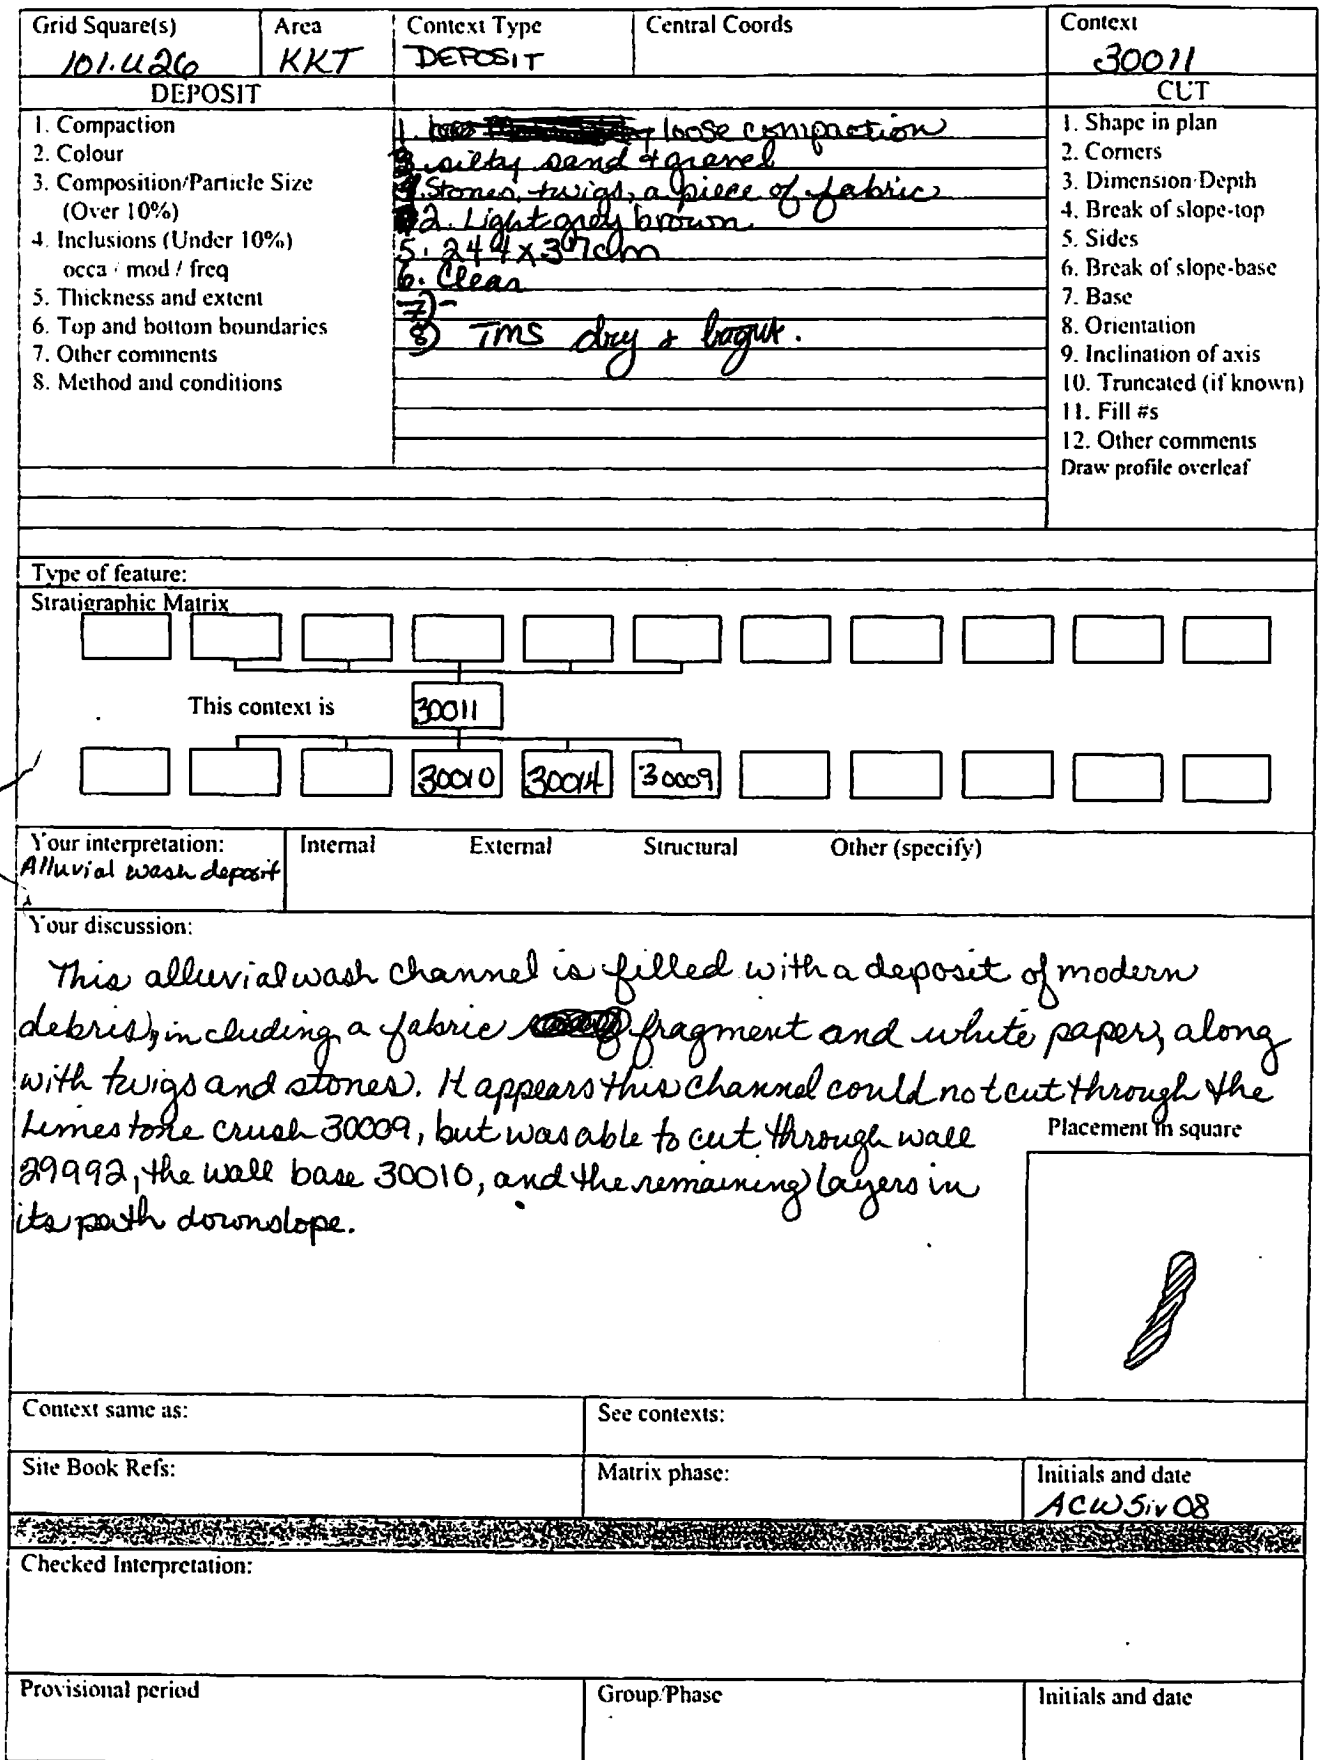 Grid Square(s) Area Context Type Central Coords Context
101.U26 KKT DEPOSIT 30011
DEPOSIT CUT
1. Compaction
2. Colour
3. Composition/Particle Size
(Over 10%)
4. Inclusions (Under 10%)
occa / mod / freq
5. Thickness and extent
6. Top and bottom boundaries
7. Other comments
8. Method and conditions
1. loose compaction
3. silty sand & gravel
4. Stones, twigs, a piece of fabric
2. Light grey brown
5. 244 x 37cm
6. Clear
7) -
8) TMS dry &
1. Shape in plan
2. Corners
3. Dimension/Depth
4. Break of slope-top
5. Sides
6. Break of slope-base
7. Base
8. Orientation
9. Inclination of axis
10. Truncated (if known)
11. Fill #s
12. Other comments
Draw profile overleaf
Type of feature:
Stratigraphic Matrix
This context is 30011
30010 30014 30009
Your interpretation: Internal External Structural Other (specify)
Alluvial wash deposit
Your discussion:
This alluvial wash channel is filled with a deposit of modern
debris, including a fabric fragment and white paper, along
with twigs and stones. It appears this channel could not cut through the
limestone crush 30009, but was able to cut through wall
29992, the wall base 30010, and the remaining layers in
its path downslope.
Placement in square
Context same as: See contexts:
Site Book Refs: Matrix phase: Initials and date
ACW 5iv08
Checked Interpretation:
Provisional period Group/Phase Initials and date